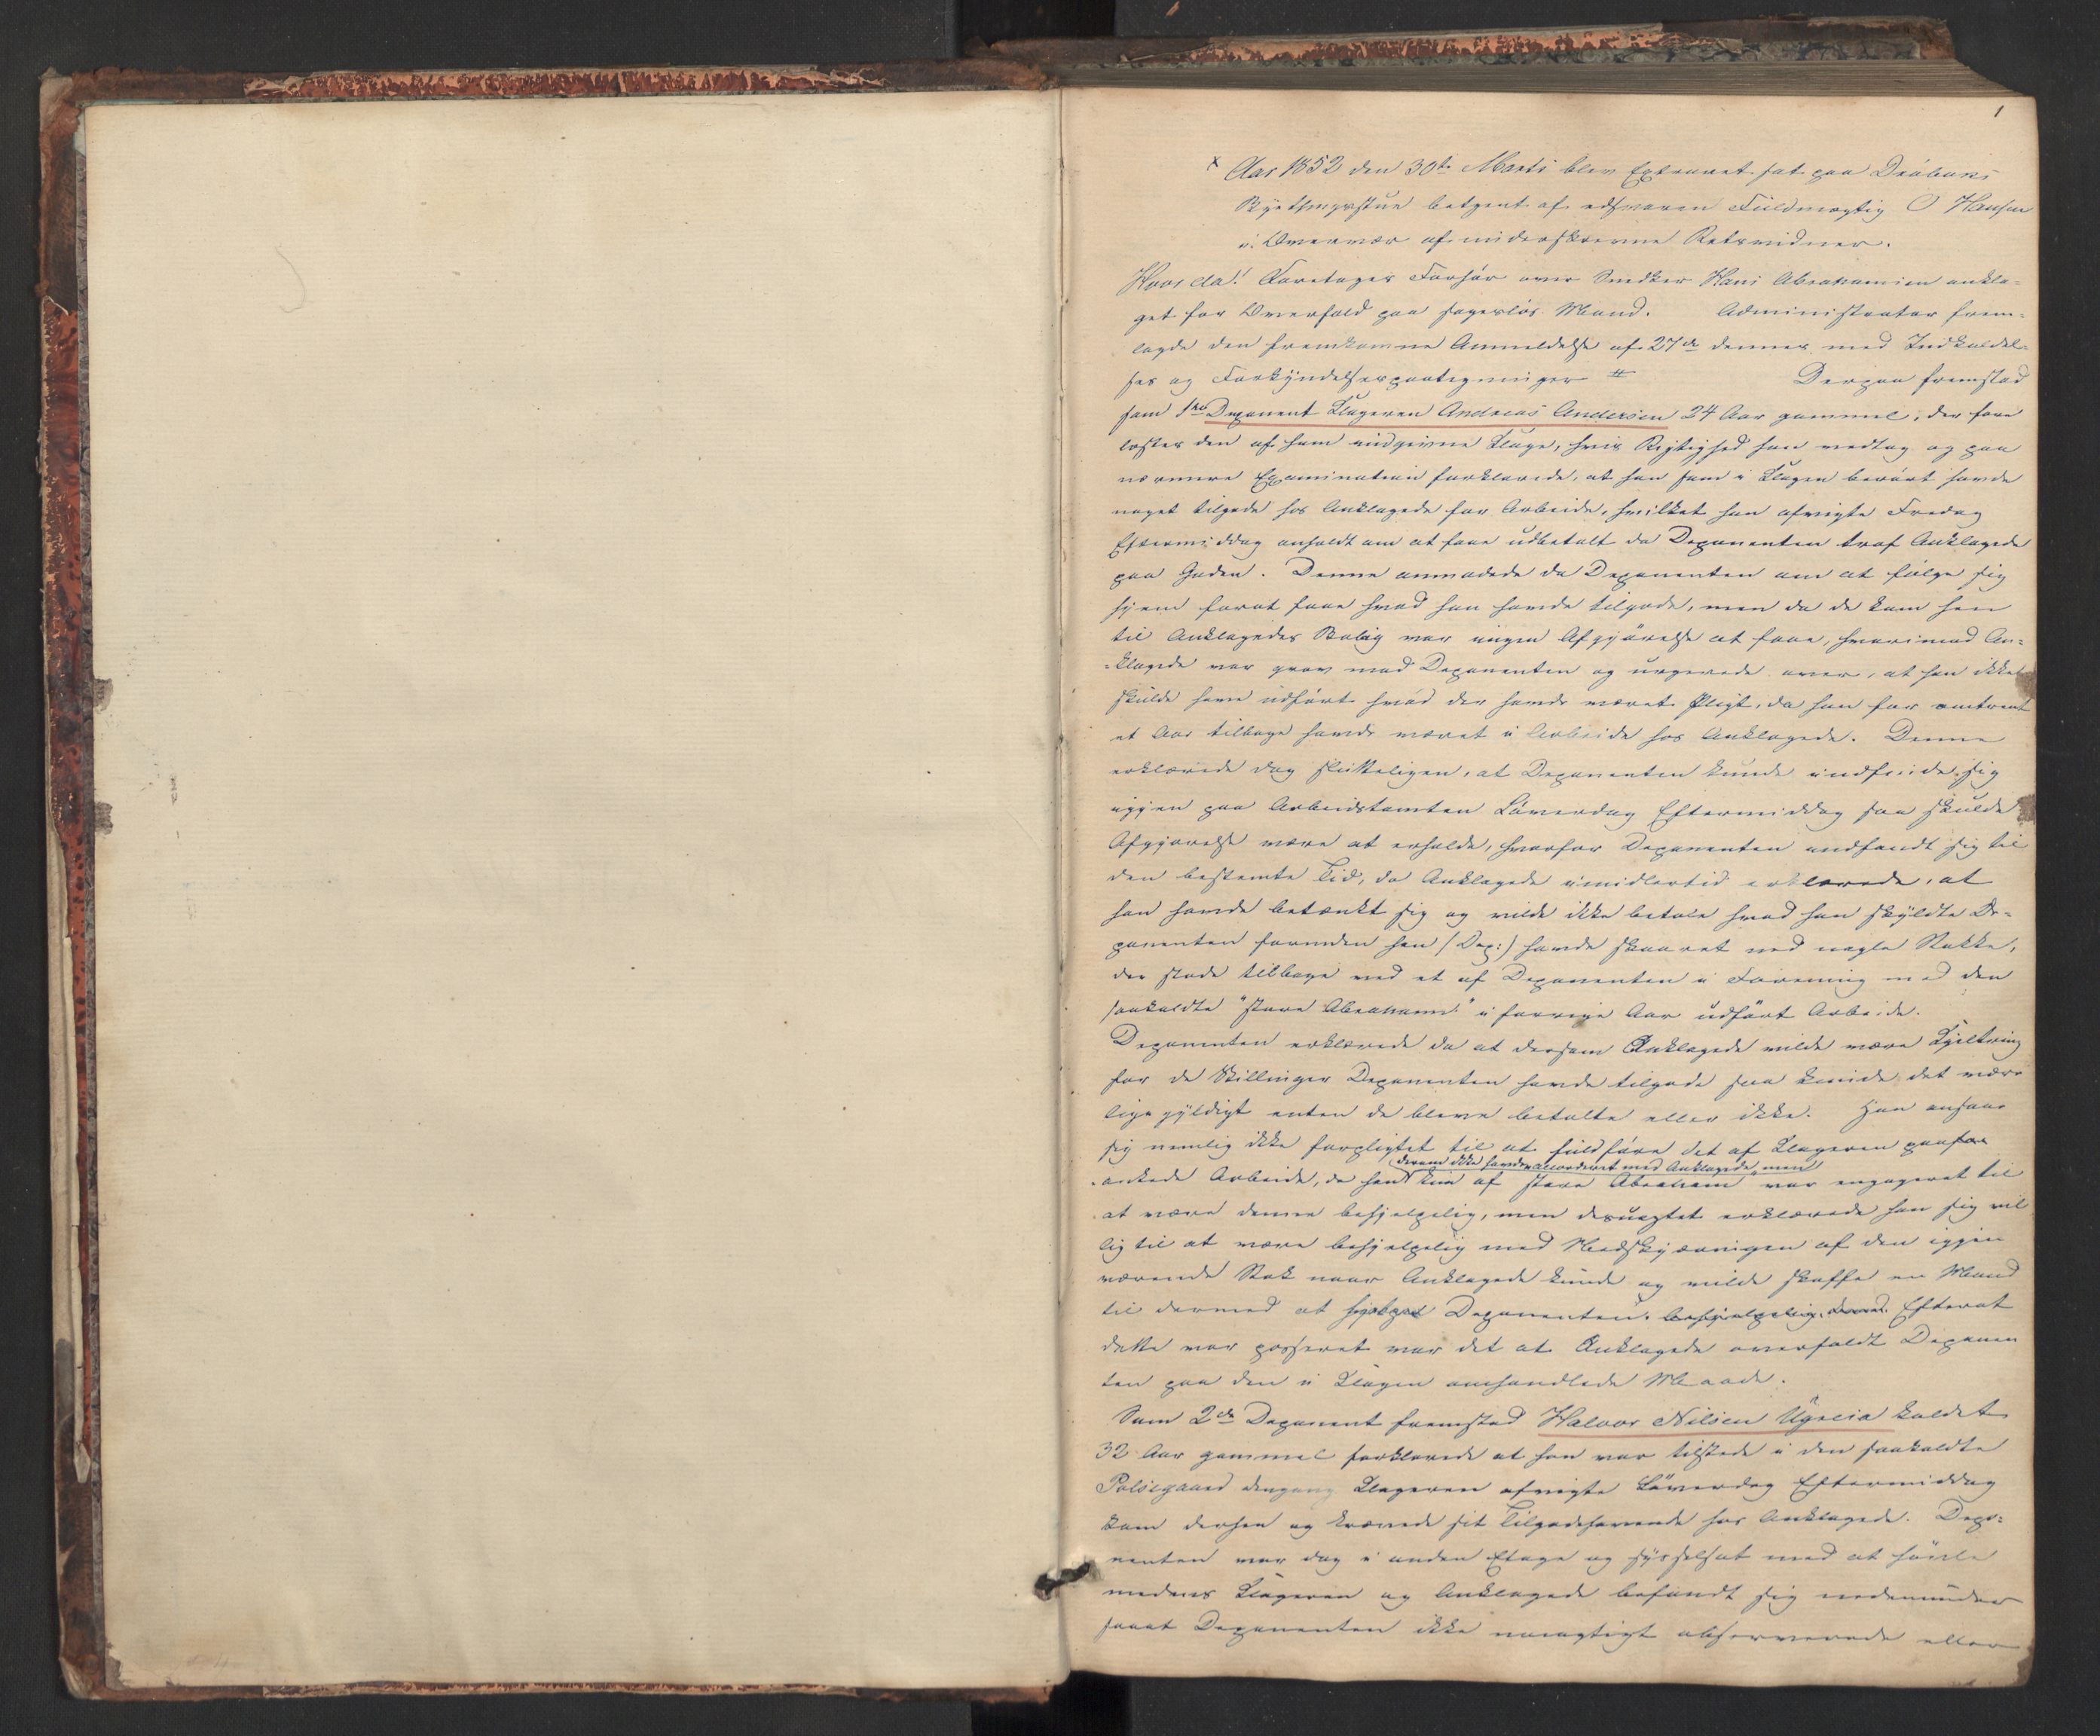 1
x Aar 1852 den 30te Marti blev Extraret sat paa Dröbaks
Bythingsstue betjent af edsvoren Fuldmægtig O Hansen
i Overvær af underskrevne Retsvidner.
Hvorda! Foretages Forhör over Snedker Hans Abrahamsen ankla=
get for Overfald paa sageslös Mand. Administrator frem=
lagde den fremkomne Anmeldelse af 27de dennes med Indkaldel=
ses og Forkyndelsespaategninger # Derpaa fremstod
som 1ste Deponent Klageren Andreas Andersen 24 Aar gammel, der fore
læstes den af ham indgivne Klage, hvis Rigtighed han vedtog og paa
nærmere Examination forklarede, at han som i Klagen berört havde
noget tilgode hos Anklagede for Arbeide, hvilket han afvigte Fredag
Eftermiddag anholdt om at faae udbetalt da Deponenten traf Anklagede
paa Gaden. Denne anmodede da Deponenten om at fölge sig
hjem forat faae hvad han havde tilgode, men da de kom hen
til Anklagedes Bolig var ingen Afgjörelse at faae, hvorimod An=
=klagede var grov mod Deponenten og urgerede over, at han ikke
skulde have udfört hvad der havde været Pligt, da han for omtrent
et Aar tilbage havde været i Arbeide hos Anklagede. Denne
erklærede dog slutteligen, at Deponenten kunde indfinde sig
igjen paa Arbeidstomten Löverdag Eftermiddag saa skulde
Afgjörelse være at erholde, hvorfor Deponenten indfandt sig til
den bestemte Tid, da Anklagede imidlertid erklærede, at
han havde betænkt sig og vilde ikke betale hvad han skyldte De=
ponenten forinden han /:Dep:/ havde skaaret ned nogle Stokke,
der stode tilbage ved et af Deponenten i Forening med den
saakaldte "store Abraham" i forrige Aar udfört Arbeide.
Deponenten erklærede da at dersom Anklagede vilde være Kjeltring
for de Skillinger Deponenten havde tilgode saa kunde det være
lige gyldigt enten de bleve betalte eller ikke. Han ansaae
sig nemlig ikke forpligtet til at fuldföre det af Klageren paa
derom ikke havde accorderet med Anklagede, men
ankede Arbeide, da han kun af store Abraham var engageret til
at være denne behjelpelig, men desuagtet erklærede han sig vil
lig til at være behjelpelig med Nedskjæringen af den igjen
værende Stok naar Anklagede kunde og vilde skaffe en Mand
til dermed at hjelpe Deponenten. behjelpelig dermed. Efterat
dette var passeret var det at Anklagede overfaldt Deponen
ten paa den i Klagen omhandlede Maade.
Som 2den Deponent fremstod Halvor Nilsen Ugreia kaldet
32 Aar gammel forklarede at han var tilstede i den saakaldte
Polsegaard dengang Klageren afvigte Löverdag Eftermiddag
kom derhen og krævede sit Tilgodehavende hos Anklagede. Depo=
nenten var dog i anden Etage og sysselsat med at hövle
medens Klageren og Anklagede befandt sig nedenunder
saaat Deponenten ikke nöiagtigt observerede eller